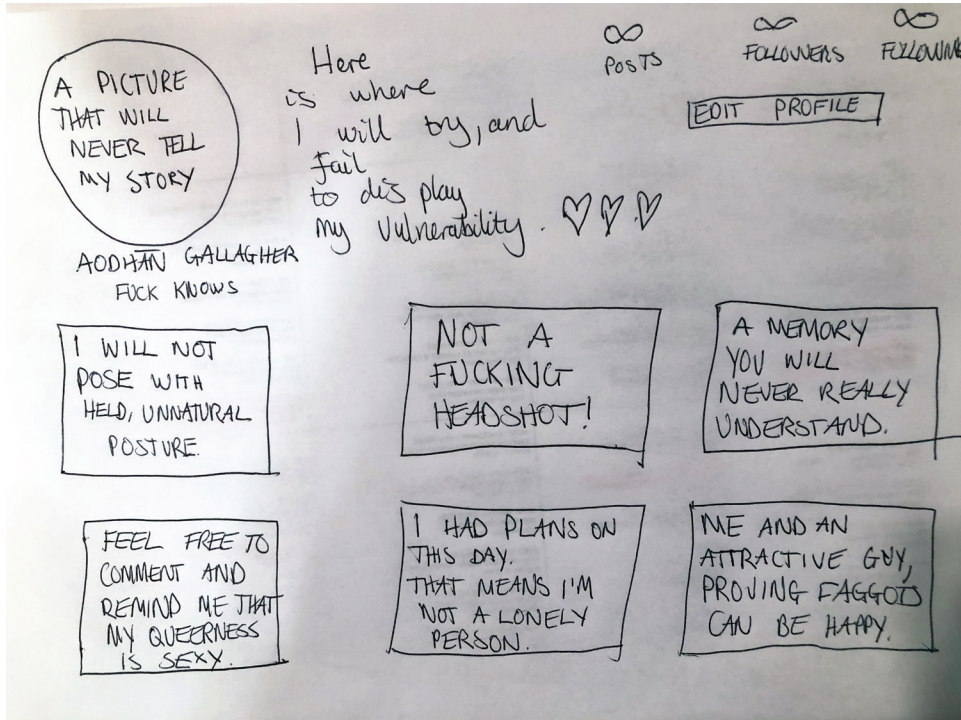 A PICTURE
THAT WILL
NEVER TELL
MY STORY
AODHÁN GALLAGHER
FUCK KNOWS
Here
is where
I will try, and
fail
to display
my vulnerability. ♡♡♡
∞
POSTS
∞
FOLLOWERS
∞
FOLLOWING
EDIT PROFILE
I WILL NOT
POSE WITH
HELD, UNNATURAL
POSTURE.
NOT A
FUCKING
HEADSHOT!
A MEMORY
YOU WILL
NEVER REALLY
UNDERSTAND.
FEEL FREE TO
COMMENT AND
REMIND ME THAT
MY QUEERNESS
IS SEXY.
I HAD PLANS ON
THIS DAY.
THAT MEANS I'M
NOT A LONELY
PERSON.
ME AND AN
ATTRACTIVE GUY,
PROVING FAGGOTS
CAN BE HAPPY.